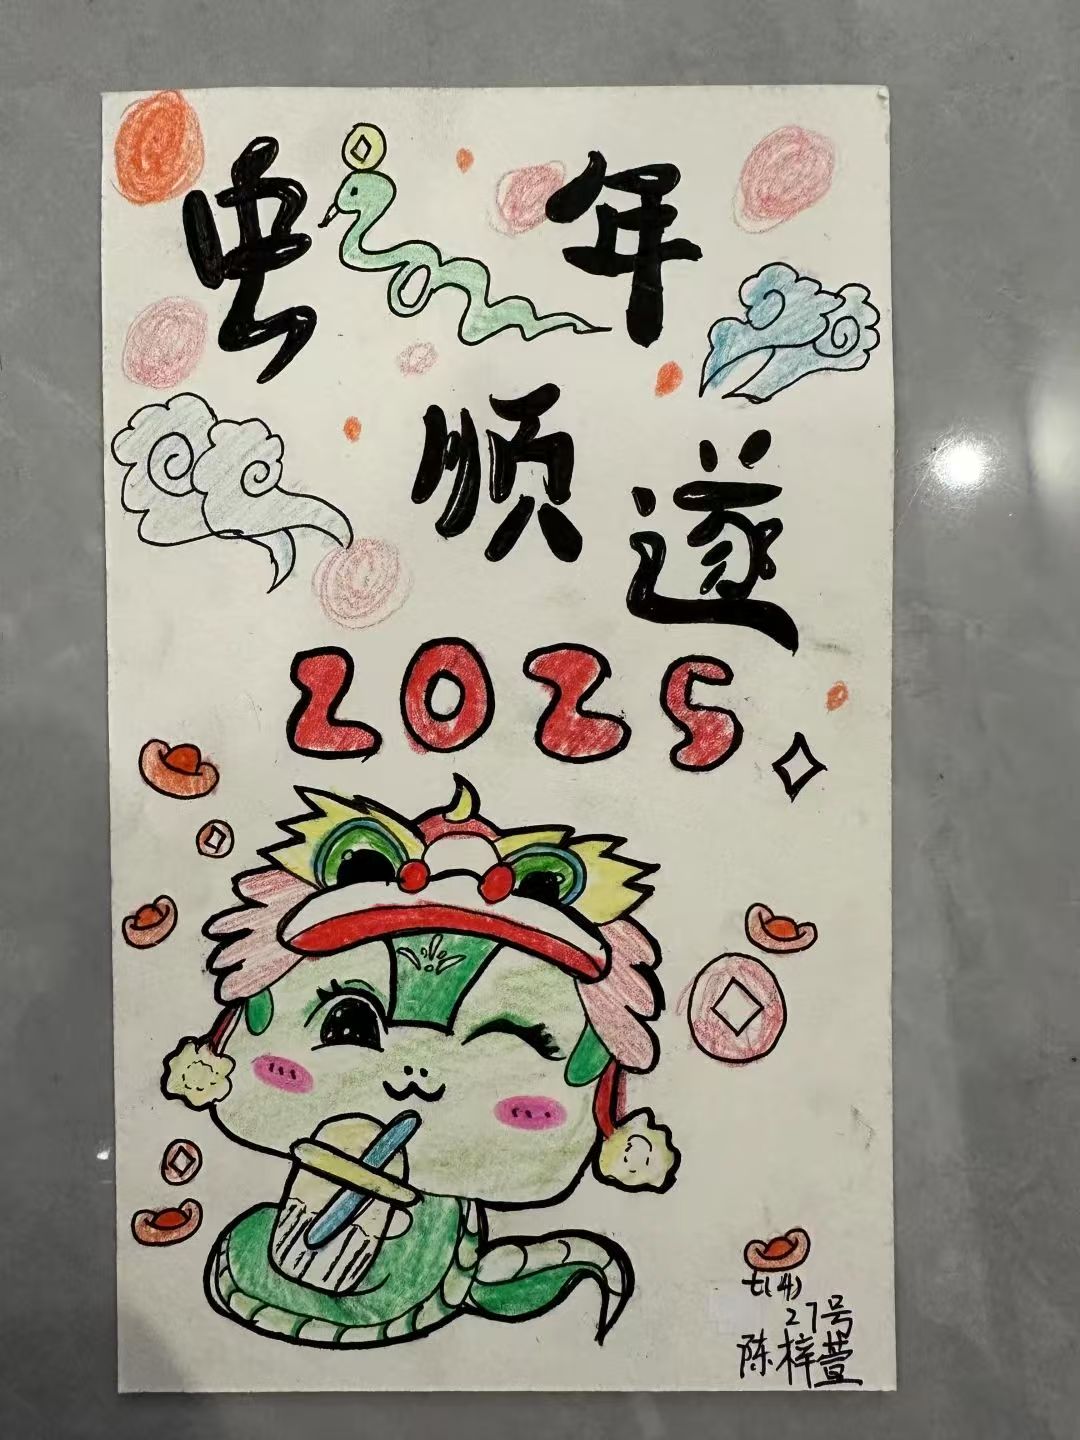 蛇年
顺遂
2025
七(4)
27号
陈梓萱